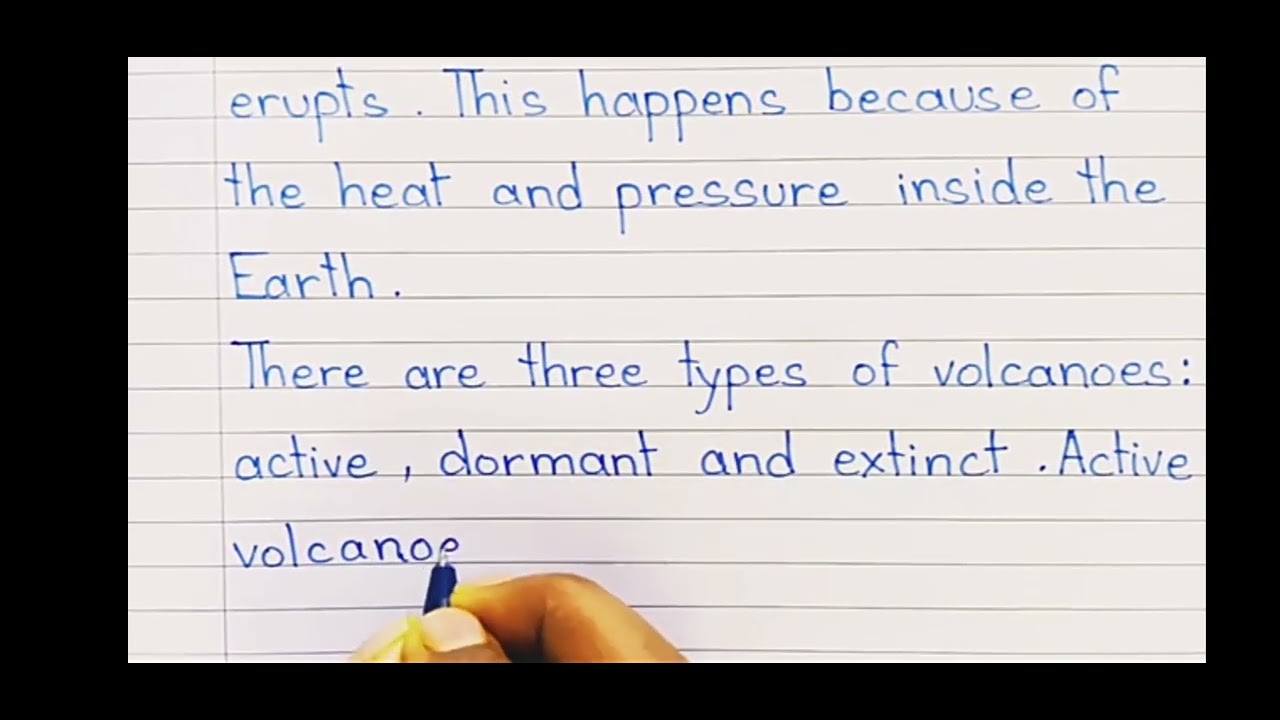 erupts. This happens because of
the heat and pressure inside the
Earth.
There are three types of volcanoes:
active, dormant and extinct. Active
volcanoe